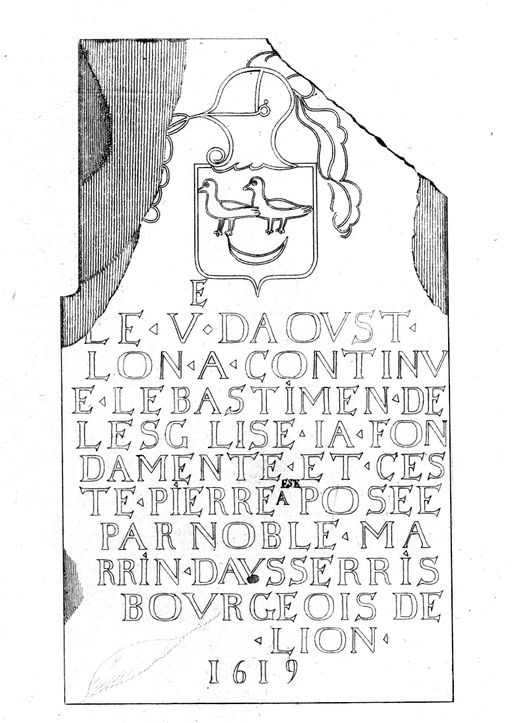 E
LE · V · DAOVST ·
LON · A · CONTINV
E · LE BASTIMEN · DE
LESG LISE · IA · FON
DAMENTE · ET · CES
TE · PIERRE A ESE POSEE
PAR NOBLE · MA
RRIN · DAVSSERRIS
BOVRGEOIS DE
· LION ·
1619